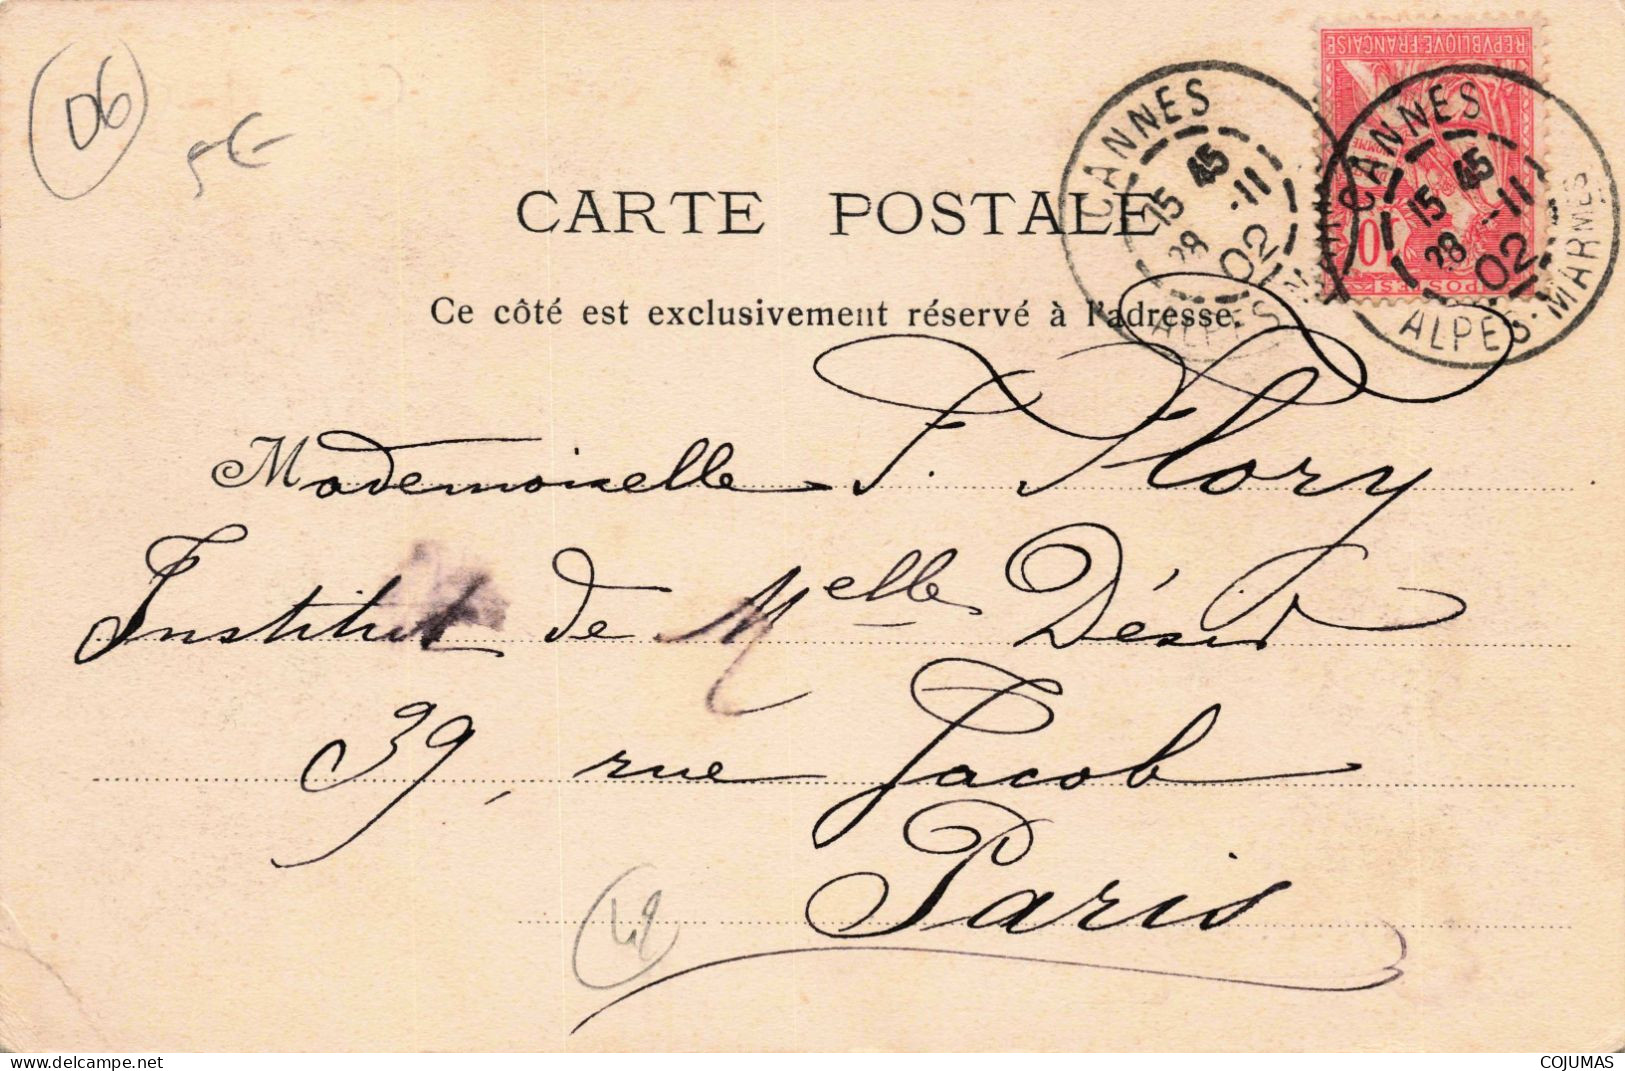 D6
5€
REPVBLIQVE FRANÇAISE
10
POSTES
CANNES
15 45
28 -11
02
ALPES-MARMES
CANNES
15 45
28 -11
02
ALPES-MARMES
CARTE POSTALE
Ce côté est exclusivement réservé à l'adresse.
Mademoiselle F. Flory
Institut de Melle Désir
39, rue Jacob
Paris
www.delcampe.net
COJUMAS